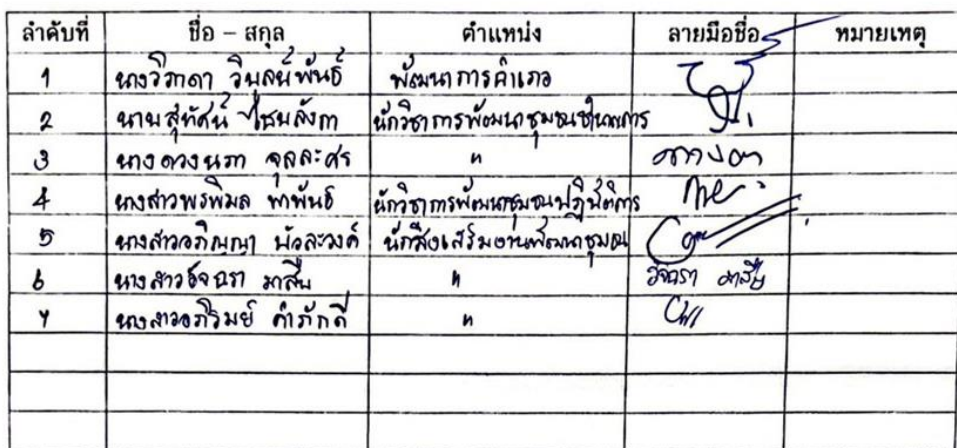 ลำดับที่ ชื่อ – สกุล ตำแหน่ง ลายมือชื่อ หมายเหตุ
1 นางวิภาดา วิบูลน์พันธ์ พัฒนาการอำเภอ
2 นายสุทัศน์ ไชยลังกา นักวิชาการพัฒนาชุมชนชำนาญการ
3 นางดวงนภา จุลละศร "
4 นางสาวพรพิมล พาพันธ์ นักวิชาการพัฒนาชุมชนปฏิบัติการ
5 นางสาวอภิญญา บัวละวงค์ นักส่งเสริมงานพัฒนาชุมชน
6 นางสาวอัจฉรา มาสืบ " อัจฉรา มาสืบ
7 นางสาวอภิรมย์ คำภักดี "